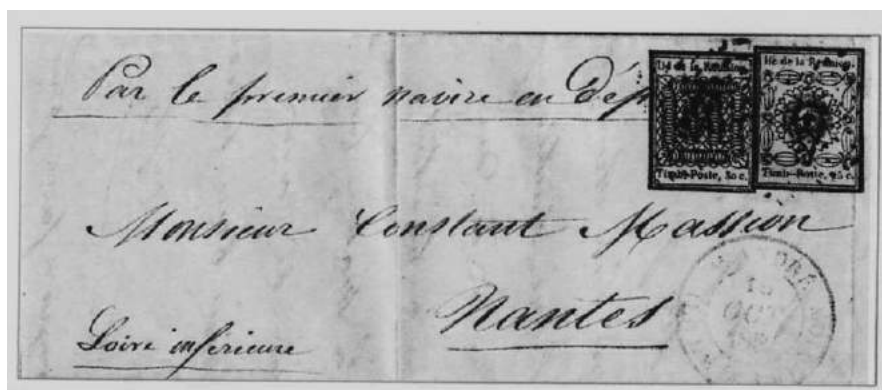 Par le premier navire en Dép
Ile de la Réunion.
Timb-Poste, 30 c.
Ile de la Réunion.
Timb-Poste, 15 c.
Monsieur Constant Massion
Nantes
Loire inférieure
ANDRÉ
OCT